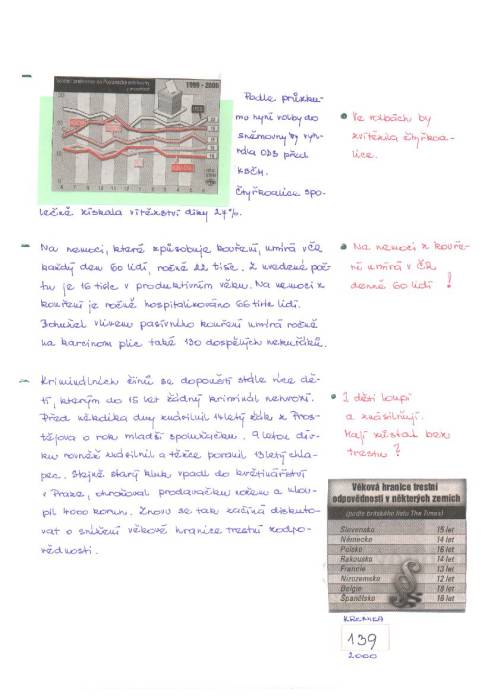 1999 - 2000
Podle průzku-
mu nyní volby do
sněmovny by vyh-
rála ODS před
KSČM.
Čtyřkoalice spo-
lečně získala vítězství díky 27%.
Ve volbách by
zvítězila čtyřkoa-
lice.
Na nemoci, které způsobuje kouření, umírá v ČR
každý den 60 lidí, ročně 22 tisíc. Z uvedené poč-
tu je 16 tisíc v produktivním věku. Na nemoci z
kouření je ročně hospitalikováno 66 tisíc lidí.
Bohužel vlivem pasívního kouření umírá ročně
na karcinom plic také 130 dospělých nekuřáků.
Na nemoci z kouře-
ní umírá v ČR
denně 60 lidí !
Kriminálních činů se dopouští stále více dě-
tí, kterým do 15 let žádný kriminál nehrozí.
Před několika dny znásilnil 14letý žák z Pros-
tějova o rok mladší spolužačku. 9 letou dív-
ku rovněž znásilnil a těžce poranil 13letý chla-
pec. Stejně starý kluk vpadl do květinářství
v Praze, ohrožoval prodavačku nožem a ulou-
pil 4000 korun. Znovu se tak začíná diskuto-
vat o snížení věkové hranice trestní zodpo-
vědnosti.
I děti loupí
a znásilňují.
Mají zůstat bez
trestu ?
Věková hranice trestní
odpovědnosti v některých zemích
(podle britského listu The Times)
Slovensko 15 let
Německo 14 let
Polsko 16 let
Rakousko 14 let
Francie 13 let
Nizozemsko 12 let
Belgie 18 let
Španělsko 16 let
KRONIKA
139
2000